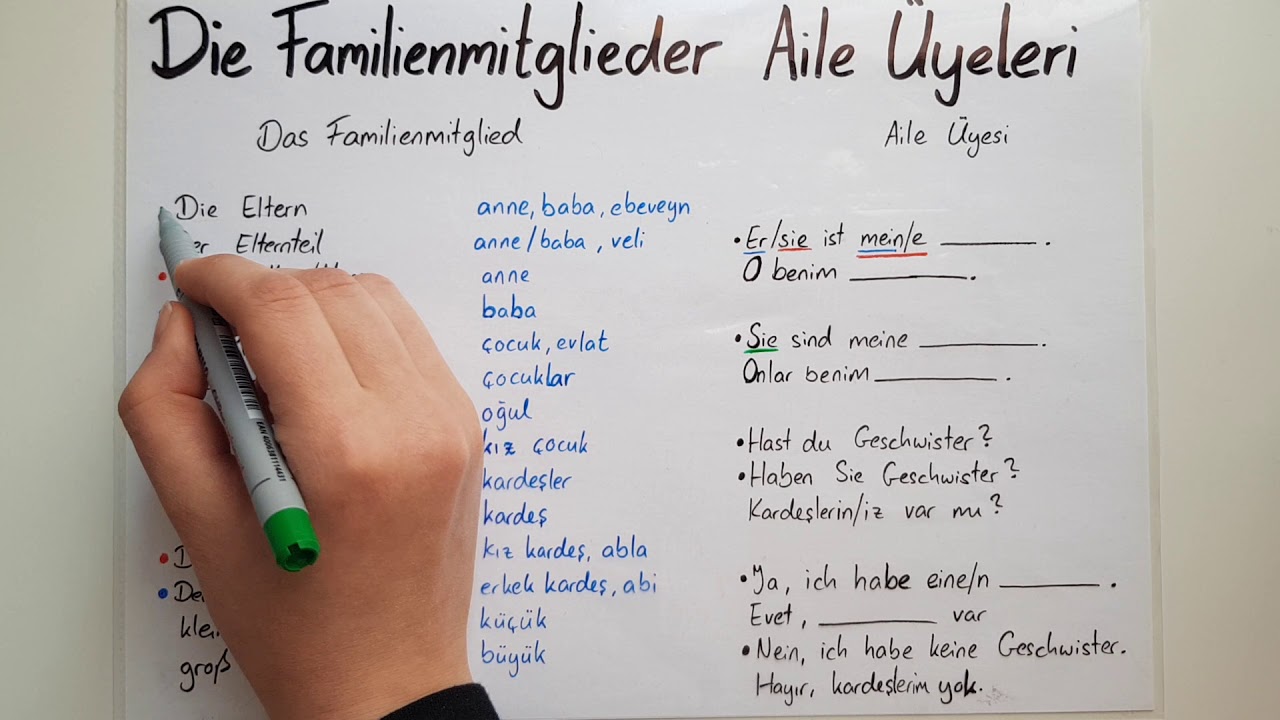 Die Familienmitglieder Aile Üyeleri
Das Familienmitglied Aile Üyesi
Die Eltern anne, baba, ebeveyn
Elternteil anne/baba, veli
anne
baba
çocuk, evlat
çocuklar
oğul
kız çocuk
kardeşler
kardeş
kız kardeş, abla
erkek kardeş, abi
küçük
groß büyük
• Er/sie ist mein/e ________.
O benim ________.
• Sie sind meine ________.
Onlar benim ________.
• Hast du Geschwister?
• Haben Sie Geschwister?
Kardeşlerin/iz var mu?
• Ja, ich habe eine/n ________.
Evet, ________ var
• Nein, ich habe keine Geschwister.
Hayır, kardeşlerim yok.
EAN 4006381114431